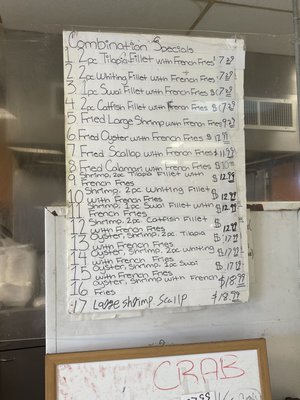 Combination Specials
1 2pc Tilapia Fillet with French Fries $7.99
2 2pc Whiting Fillet with French Fries $7.99
3 1pc Swai Fillet with French Fries $7.99
4 2pc Catfish Fillet with French Fries $7.99
5 Fried Large Shrimp with French Fries $9.99
6 Fried Oyster with French Fries $12.99
7 Fried Scallop with French Fries $11.99
8 Fried Calamari with French Fries
9 Shrimp, 2pc Tilapia Fillet with $12.99
French Fries
10 Shrimp, 2pc Whiting Fillet $12.99
with French Fries
11 Shrimp, 2pc Swai Fillet with $12.99
French Fries
12 Shrimp, 2pc Catfish Fillet $12.99
with French Fries
13 Oyster, Shrimp, 2pc Tilapia $17.99
with French Fries
14 Oyster, Shrimp, 2pc Whiting $17.99
with French Fries
15 Oyster, Shrimp, 2pc Swai $17.99
with French Fries
16 Oyster, Shrimp with French $18.99
Fries
17 Large Shrimp Scallp $18.99
CRAB